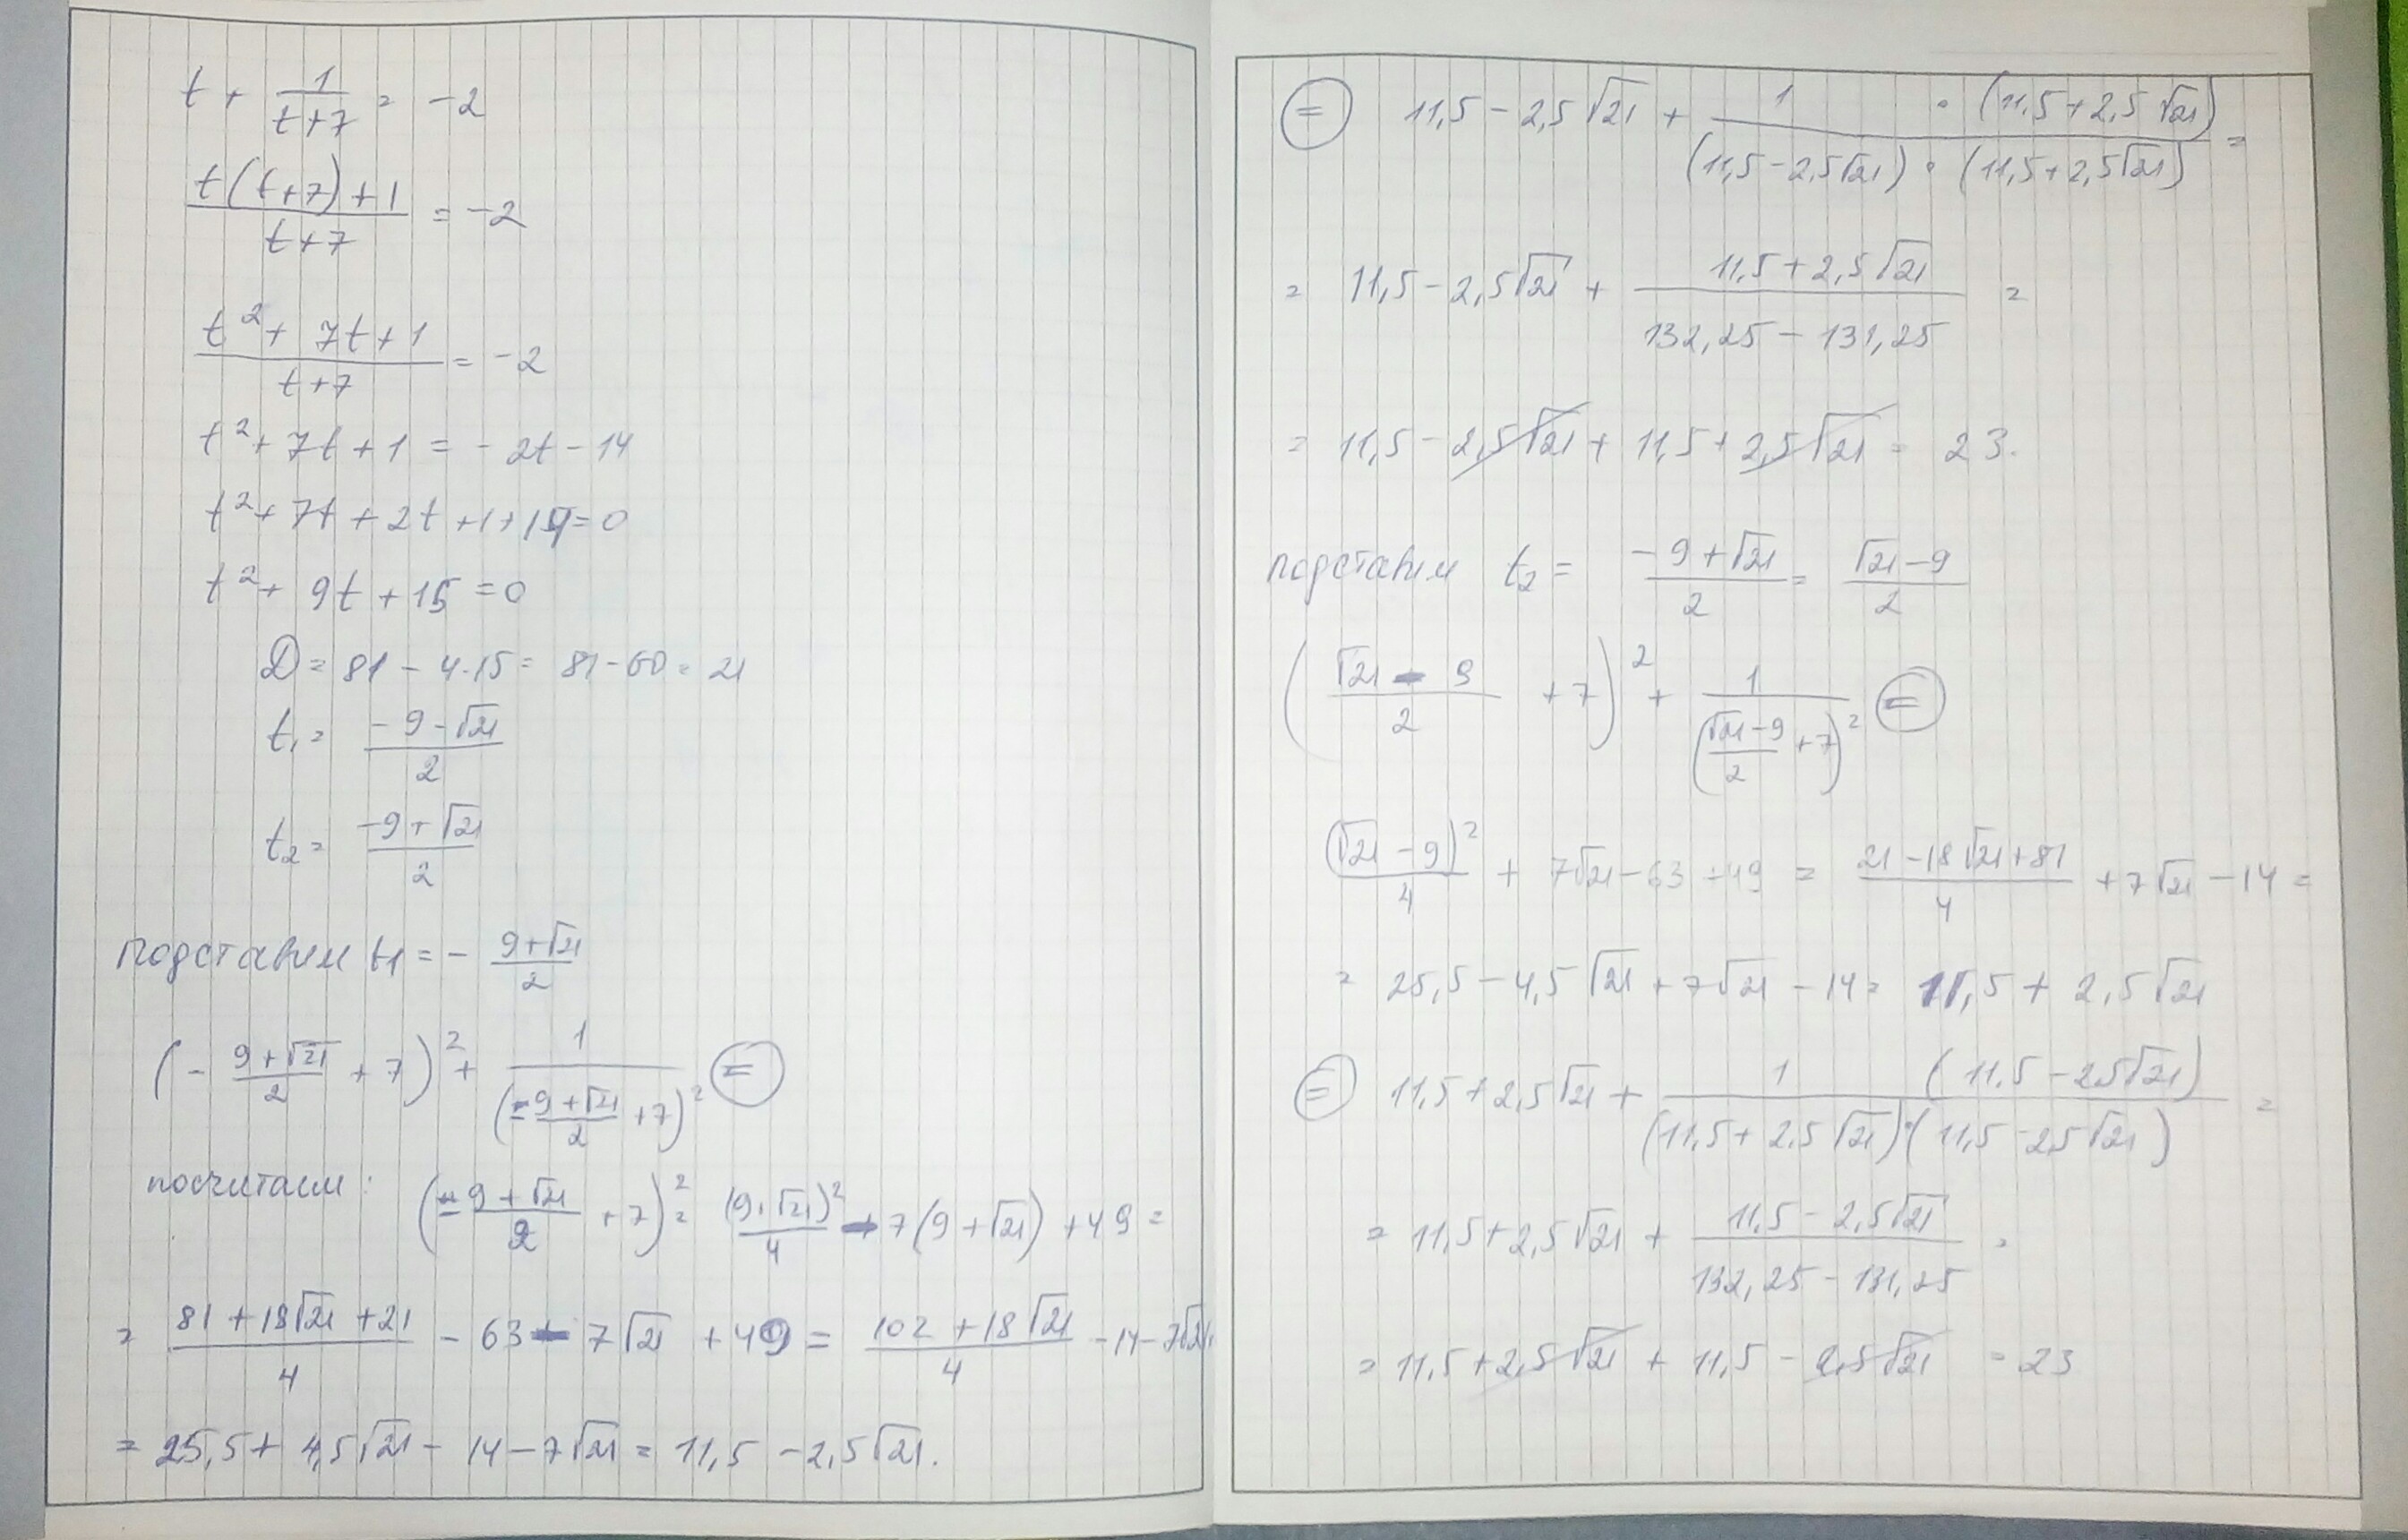 t + 1/(t+7) = -2
(t(t+7)+1)/(t+7) = -2
(t² + 7t + 1)/(t+7) = -2
t² + 7t + 1 = -2t - 14
t² + 7t + 2t + 1 + 14 = 0
t² + 9t + 15 = 0
D = 81 - 4·15 = 81 - 60 = 21
t₁ = (-9 - √21)/2
t₂ = (-9 + √21)/2
Подставим t₁ = - (9+√21)/2
(- (9+√21)/2 + 7)² + 1/(- (9+√21)/2 + 7)² (=)
посчитаем: (- (9+√21)/2 + 7)² = (9+√21)²/4 - 7(9+√21) + 49 =
= (81 + 18√21 + 21)/4 - 63 - 7√21 + 49 = (102 + 18√21)/4 - 14 - 7√21
= 25,5 + 4,5√21 - 14 - 7√21 = 11,5 - 2,5√21.
(=) 11,5 - 2,5√21 + (1 · (11,5 + 2,5√21))/((11,5 - 2,5√21) · (11,5 + 2,5√21)) =
= 11,5 - 2,5√21 + (11,5 + 2,5√21)/(132,25 - 131,25) =
= 11,5 - 2,5√21 + 11,5 + 2,5√21 = 23.
подставим t₂ = (-9 + √21)/2 = (√21 - 9)/2
((√21 - 9)/2 + 7)² + 1/((√21 - 9)/2 + 7)² (=)
(√21 - 9)²/4 + 7√21 - 63 + 49 = (21 - 18√21 + 81)/4 + 7√21 - 14 =
= 25,5 - 4,5√21 + 7√21 - 14 = 11,5 + 2,5√21
(=) 11,5 + 2,5√21 + (1 (11,5 - 2,5√21))/((11,5 + 2,5√21) · (11,5 - 2,5√21)) =
= 11,5 + 2,5√21 + (11,5 - 2,5√21)/(132,25 - 131,25) =
= 11,5 + 2,5√21 + 11,5 - 2,5√21 = 23